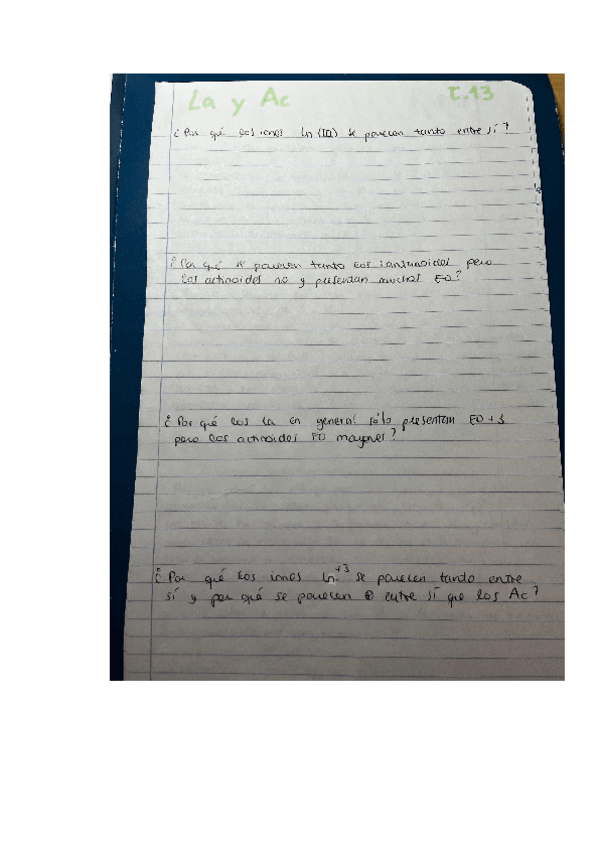 La y Ac T.13
¿Por qué los iones Ln (III) se parecen tanto entre sí?
¿Por qué se parecen tanto los lantanoides pero
los actinoides no y presentan muchos EO?
¿Por qué los La en general sólo presentan EO+3
pero los actinoides EO mayores?
¿Por qué los iones Ln+3 se parecen tanto entre
sí y por qué se parecen ⊕ entre sí que los Ac?